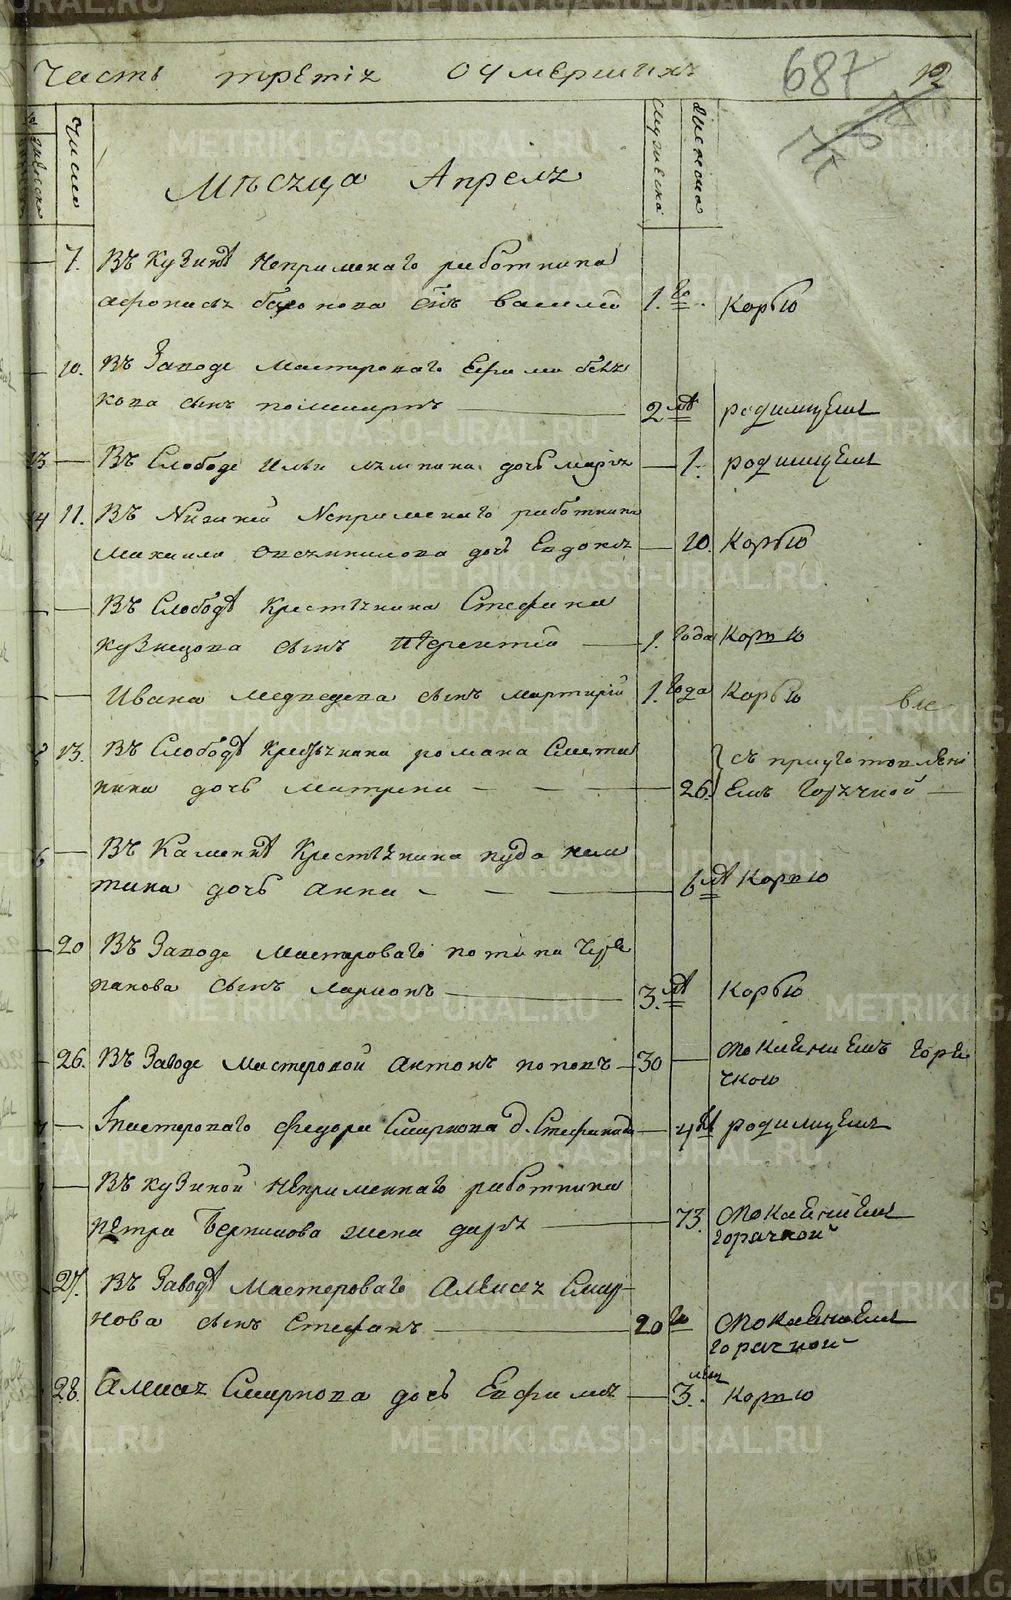 Часть третія о умершихъ 687 12
число
Мѣсяца Апреля
7. Въ Кузинѣ Непременаго работника
афонасья сынъ василей 1. го Корью
10. Въ Заводе Мастероваго Ефима бѣля
кова сынъ 2 мѣ родимцемъ
13 — Въ Слободе Ильи дочь марья — 1. родимцемъ
14 11. Въ Нижней Непременаго работника
Михаила Овсянникова дочь Евдокья — 20. Корью
Въ Слободѣ Крестьянина Стефана
Кузнецова сынъ терентей — 1. года Корью
Ивана медведева сынъ мартирій 1. года Корью
13. Въ Слободѣ Крестьянина романа Смета
нина дочь матрена — — — 26. съ приуготовлені
емъ горячкой —
6 — Въ Каменкѣ Крестьянина
дочь анна — — — 6 мѣ Корью
20 Въ Заводе Мастероваго потапа Чере
панова сынъ ларионъ — 3. мѣ Корью
26. Въ Заводе Мастеровой антонъ поповъ — 30 — покаяниемъ горя
чкою
— Мастероваго федора Смирнова д. Стефанида — 4 родимцемъ
— Въ кузиной непременнаго работника
петра жена дарья — 73. покаяниемъ
горячкой
27. Въ Заводѣ Мастероваго Алексея Смир-
нова сынъ Стефанъ — 20 покаяниемъ
горячкой
28. Алексея Смирнова дочь Евфимья — 3. Корью
METRIKI.GASO-URAL.RU